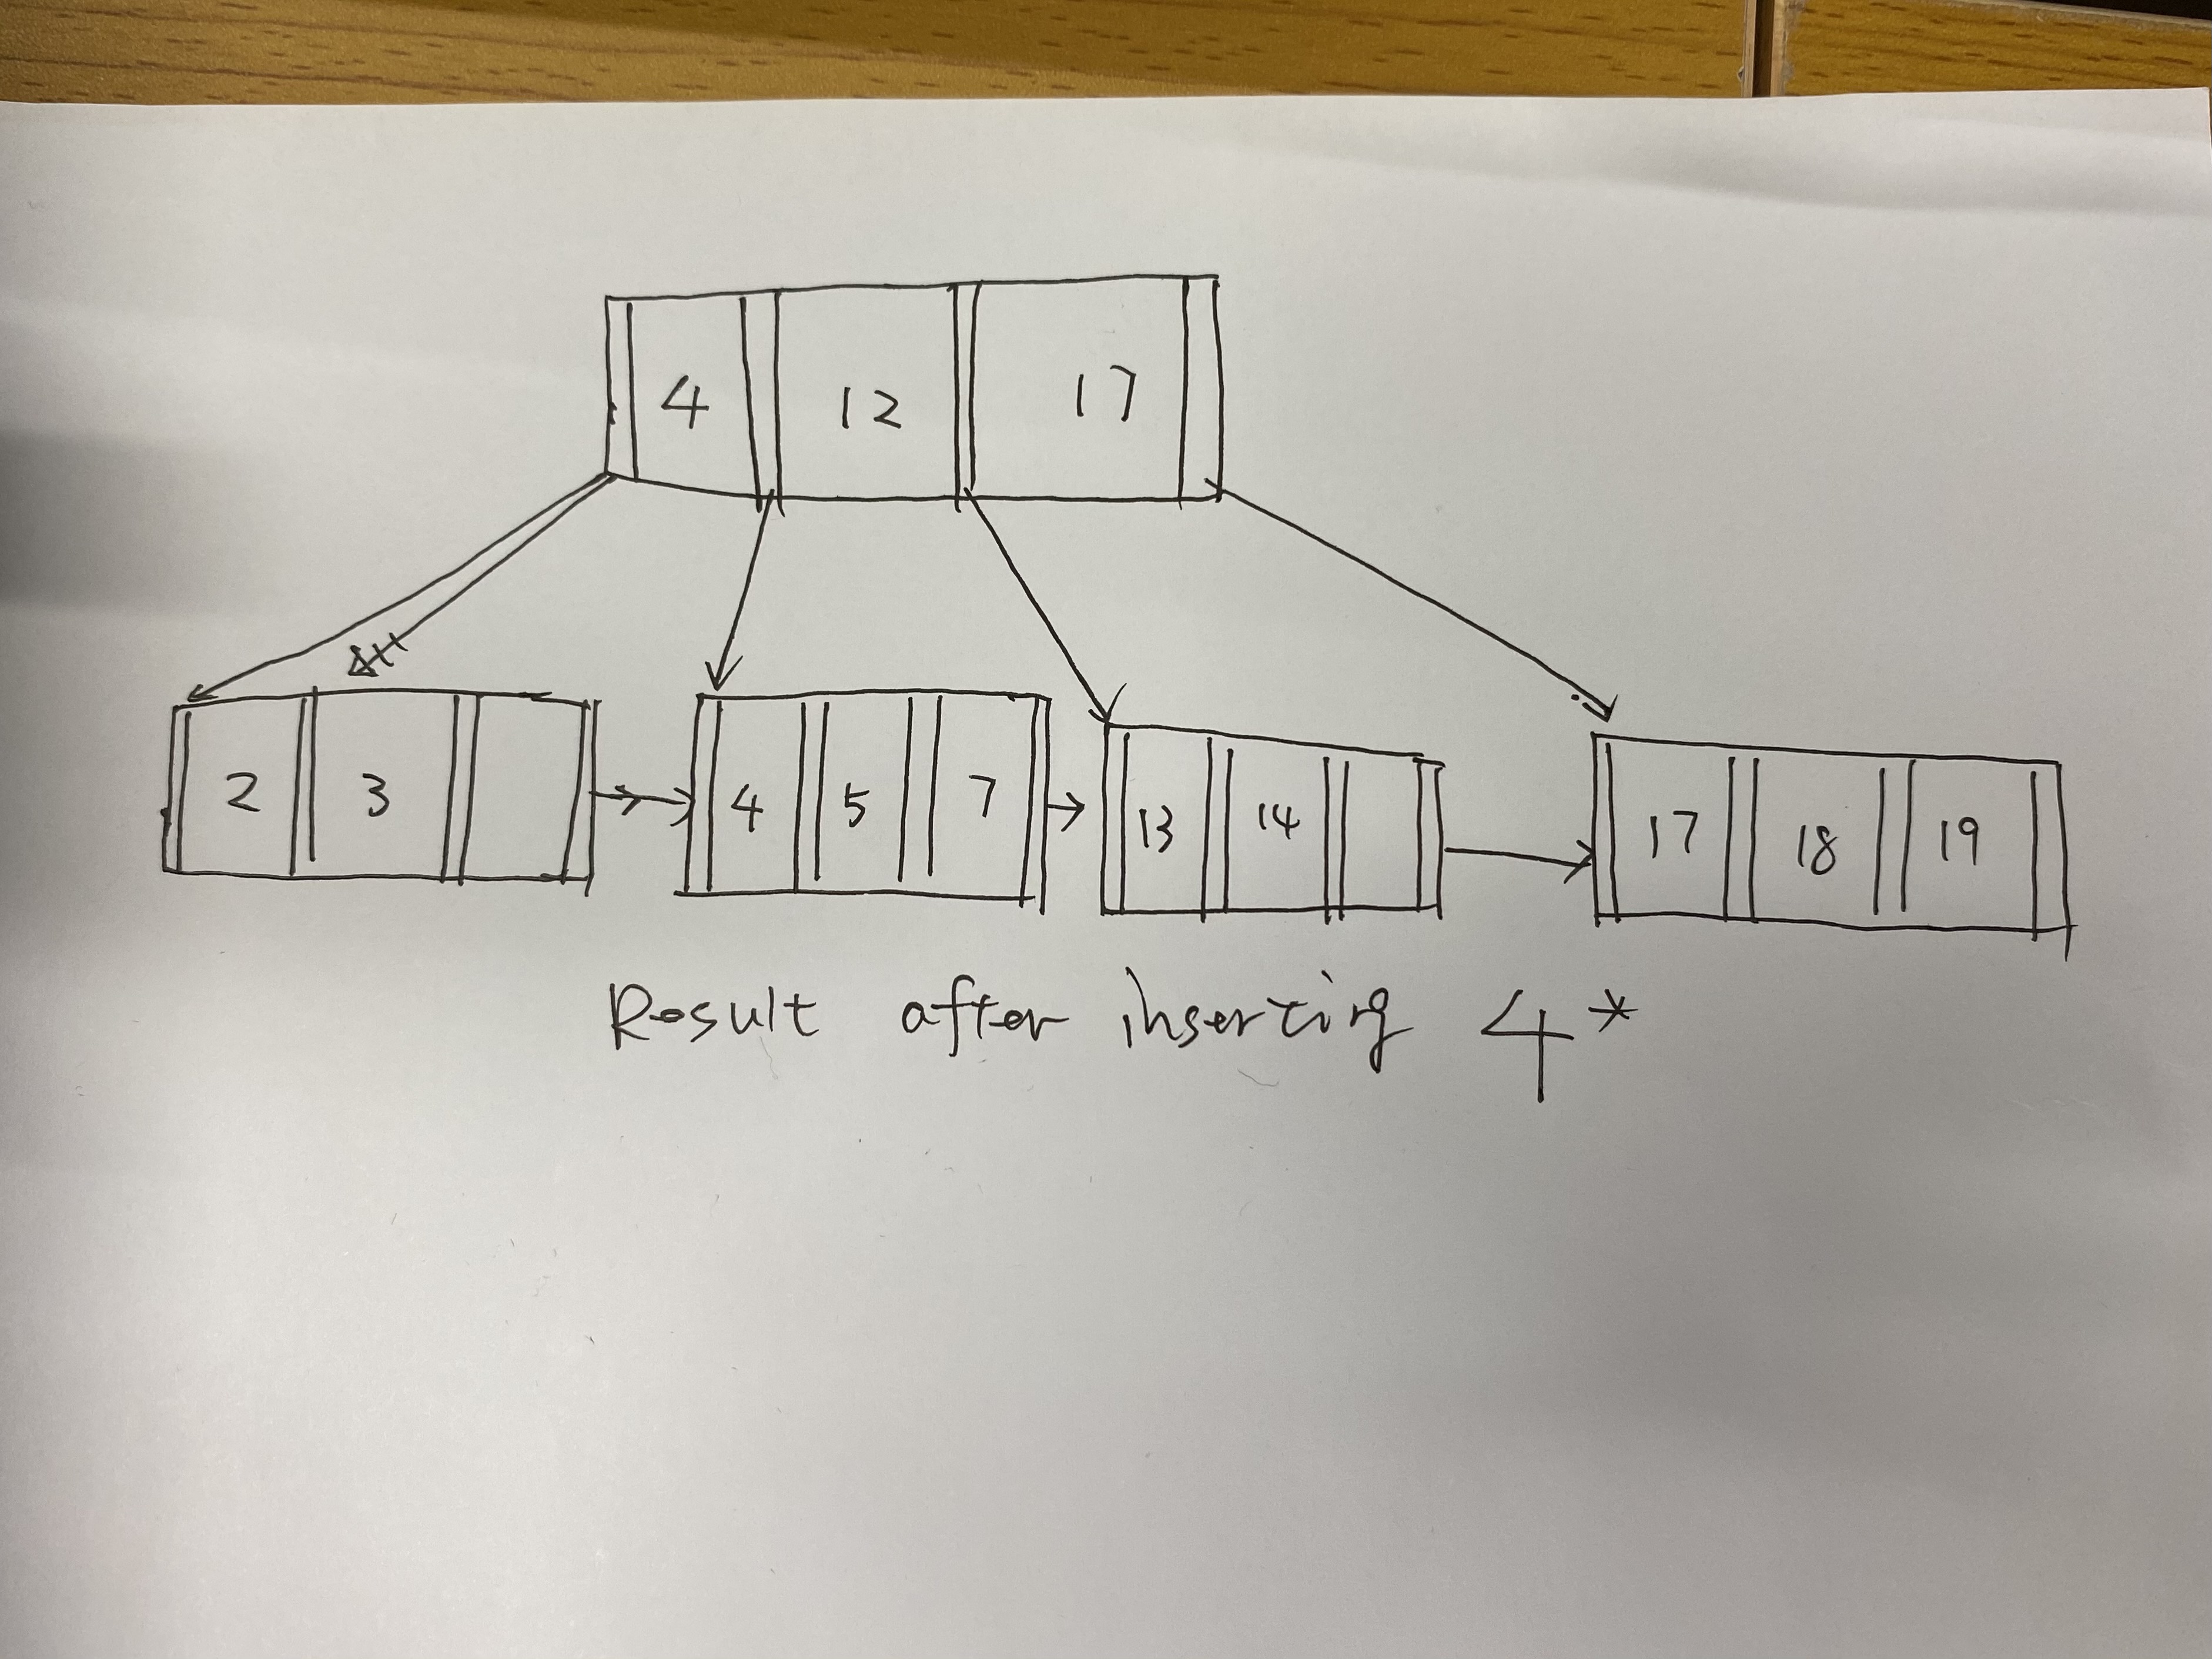 4 12 17
2 3 4 5 7 13 14 17 18 19
Result after inserting 4*